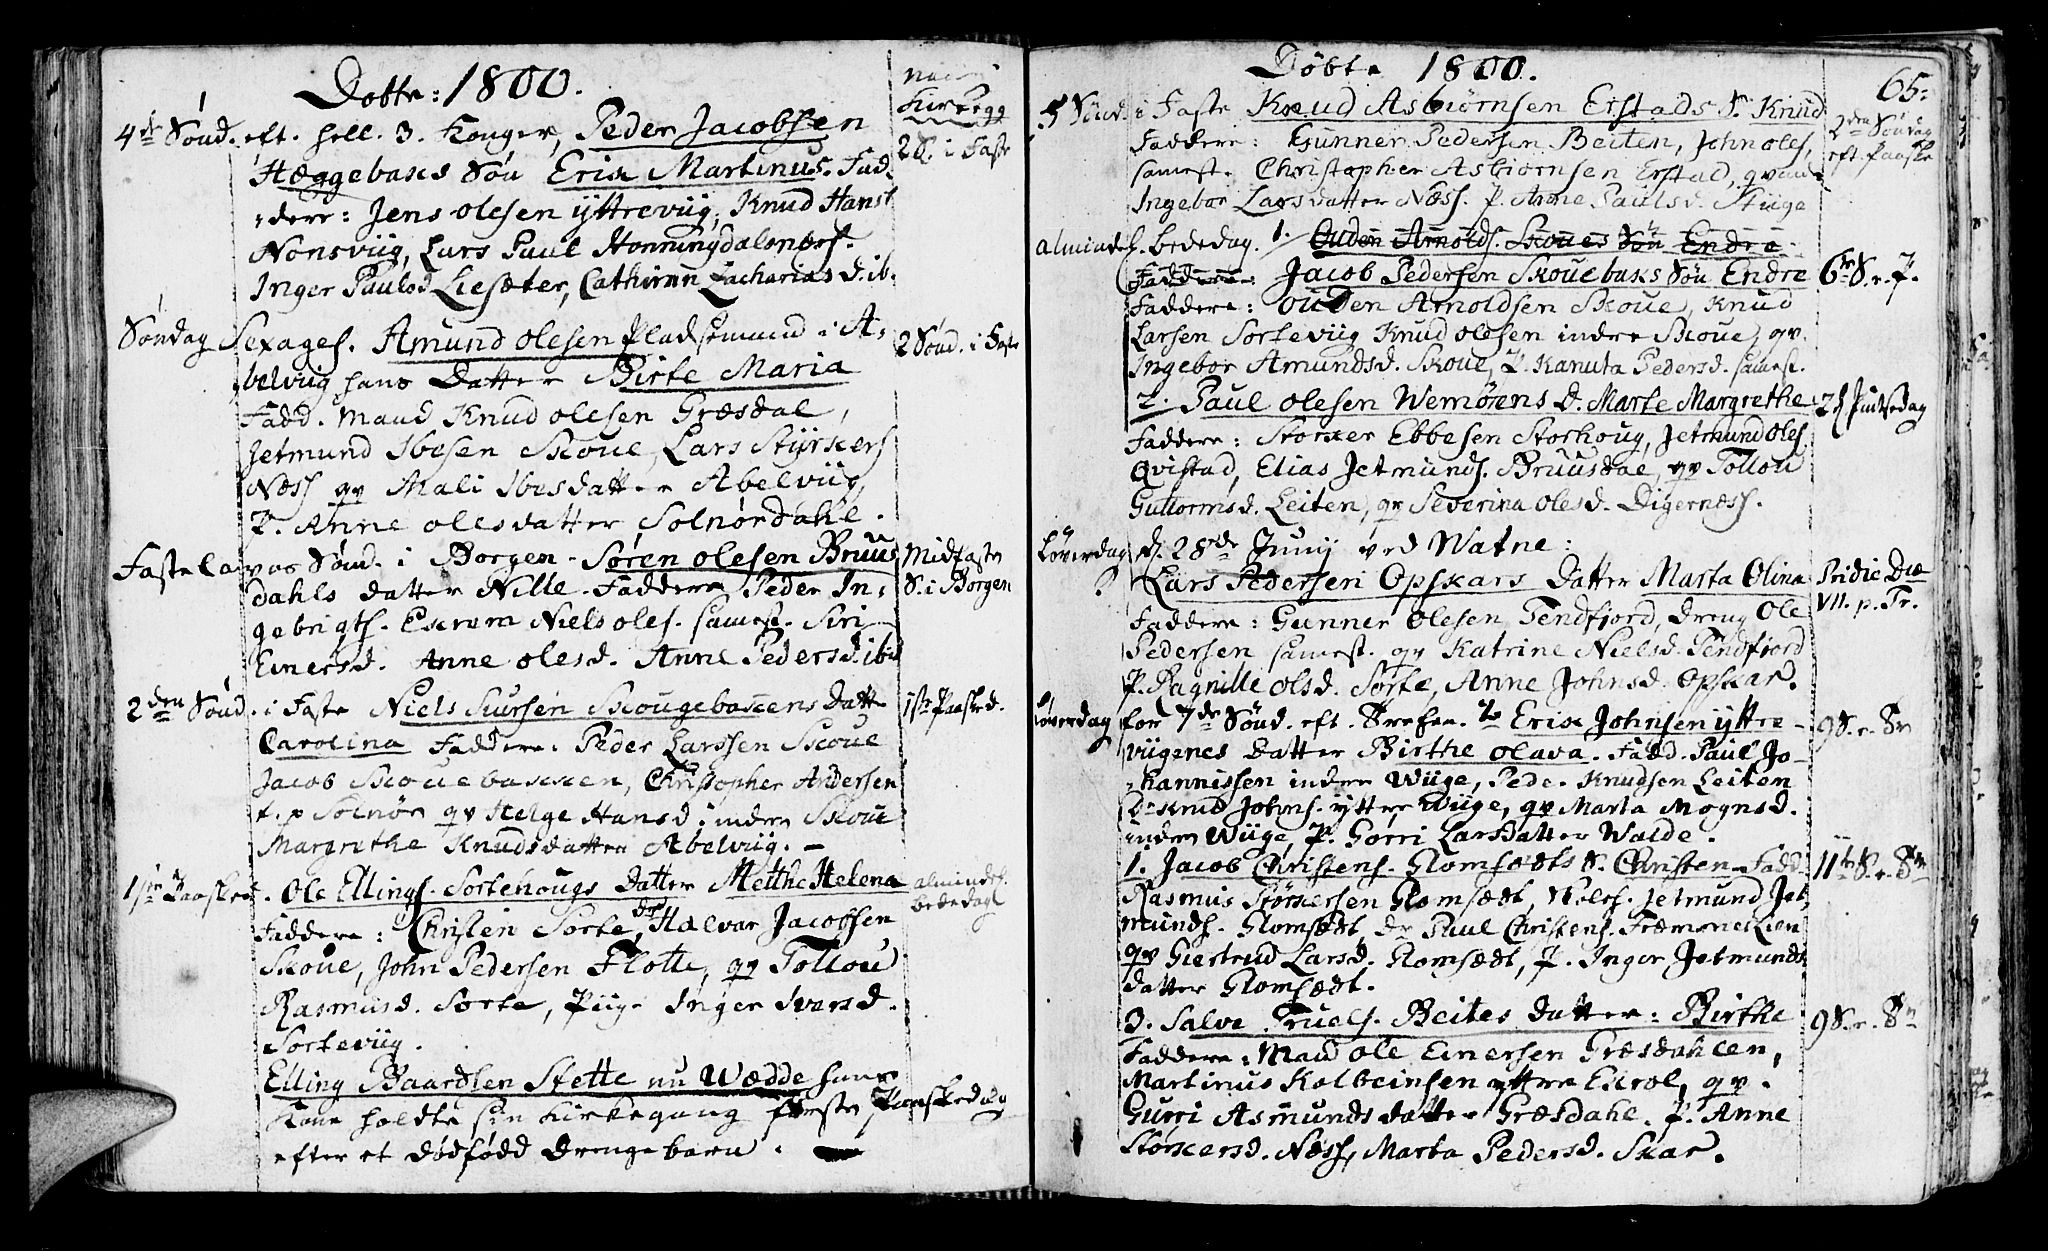 Døbte: 1800.
Kirkegg
4de Sønd. eft. hell. 3. Konger, Peder Jacobsen
2 S. i Faste
Hæggebaks Søn Erik Martinus. Fad-
dere: Jens Olesen Yttreviig, Knud Hans
Nonsviig, Lars Paul Honningdalsnæss.
Inger Paulsd. Liesæter, Cathrin Zacharias d. ib.
Søndag Sexages. Amund Olesen Pladsemand i A-
2 Sønd. i Faste
belviig hans Datter Birte Maria
Fadd. Mand Knud Olesen Græsdal,
Jetmund Ibsen Skoue, Lars Styrkers
Næss qv Mali Ibsdatter Abelviig,
P. Anne Olesdatter Solnørdahl.
Fastelavns Sønd. i Borgen - Søren Olesen Bruus
Midfaste
S. i Borgen
dahls datter Nille - Faddere Peder In-
gebrigts. Ekrem Niels Oles. samest. Siri
Einersd. Anne Olesd. Anne Pedersd. ibid
2den Sønd. i Faste Niels Siursen Skougebakkens Datt
1ste Paasked.
Carolina Faddere: Peder Larssen Skoue
Jacob Skouebakken, Christopher Andersen
t. p Solnør qv Helge Hansd. indre Skoue
Margrethe Knudsdatter Abelviig. -
1ste Paasked. Ole Ellings. Sortehougs Datter Metthe Helena
almindel.
bededag
Faddere: Christen Sorte, Halvor Jacobsen
Skoue, John Pedersen Flotte, qv Tollou
Rasmusd. Sorte, Piige Inger Iversd.
Sorteviig.
Elling Baardsen Stette nu Wædde hans
Kone holdte sin Kirkegang første Paaskedag
efter et dødfødd Drengebarn.
Døbte 1800.
65.
5 Sønd. i Faste Knud Asbiørnsen Erstads S. Knud
2den Søndag
eft. Paaske
Faddere: Gunner Pedersen Beiten, John Oles.
samest. Christopher Asbiørnsen Erstad, qvind
Ingebor Larsdatter Næss. P. Anne Paulsd. Stüge
almindel. bededag. 1. Ouden Arnolds. Skoues Søn Endre
Faddere: Jacob Pedersen Skouebaks Søn Endre
6te S. e. P.
Faddere: Ouden Arnoldsen Skoue, Knud
Larsen Sorteviig Knud Olesen indre Skoue, qv.
Ingebor Amundsd. Skoue, P. Kanuta Pedersd. samest.
2. Paul Olesen Wemørens D. Marte Margrethe
2d Pintsedag
Faddere: Størker Ebbesen Storhoug, Jetmund Oles.
Qvistad, Elias Jetmunds. Bruusdal, qv Tollou
Guttormsd. Leiten, qv Severina Olesd. Digernæss.
Løverdag d. 28de Junij ved Watne:
Lars Pedersen Opskars Datter Marta Olina
Pridie Dæ
VII. p. Tr.
Faddere: Gunner Olesen Tendfjord, Dreng Ole
Pedersen samest. qv Katrine Nielsd. Tendfjord
P. Ragnille Olsd. Sorte, Anne Johnsd. Opskar.
Løverdag for 7de Sønd. eft. Trefen. Erik Johnsen yttre-
9 S. e. Tr
viigenes datter Birthe Olava. Fadd. Paul Jo-
hannissen indre Wiige, Pede. Knudsen Leiten
Dr Knud Johns. yttre Wiige, qv Marta Mognsd.
indre Wiige, P. Gorri Larsdatter Walde.
1. Jacob Christens. Glomsædts S. Christen - Fadd.
11te S. e. Tr
Rasmus Størkersen Glomsædt, Jetmund Jet
munds. Glomsædt, Dr Paul Christens. Fremmerlien
qv Giertrud Larsd. Glomsædt, P. Inger Jetmunds
datter Glomsædt.
3. Salve Truels. Beites datter: Birthe
9 S. e. Tr
Faddere: Mand Ole Einersen Græsdahlen,
Martinus Kolbeinsen yttre Ekrol, qv.
Gurri Asmundsdatter Græsdahl. P. Anne
Størkersd. Næss, Marta Pedersd. Skar.